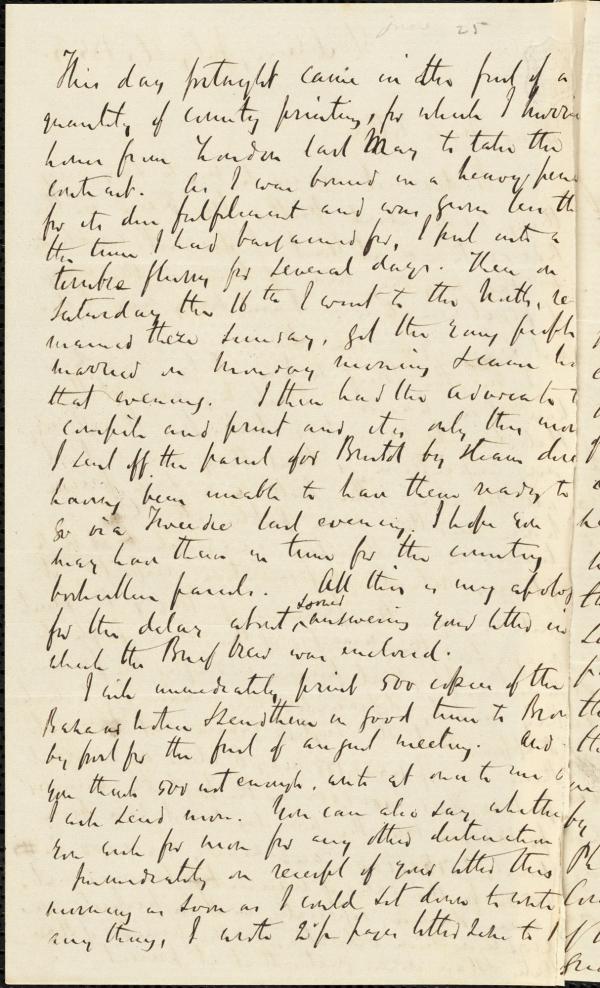 June 25
This day fortnight came in the first of a
quantity of county printing, for which I hurried
home from London last May to take the
contract. As I was bound in a heavy
for its due fulfilment and was given less th
the time I had bargained for, I put into a
terrible flurry for several days. Then on
Saturday the 16th I went to the North, re
mained there Sunday, got the young people
married on Monday morning & came ho
that evening. I then had the advocate t
compile and print and it is only this mor
I sent off the parcel for Bristol by steam dire
having been unable to have them ready to
go via Tweedie last evening. I hope you
may have them in time for the country
booksellers parcels. All this is my apolog
for the delay about sooner answering your letter in
which the Brief View was enclosed.
I will immediately print 500 copies of the
notice & send them in good time to
by post for the first of august meeting. And
you think 500 not enough, write at once to me
I will send more. You can also say whether
you wish for more for any other destination
Immediately on receipt of your letter this
morning as soon as I could sit down to write
any thing, I wrote pages letter to